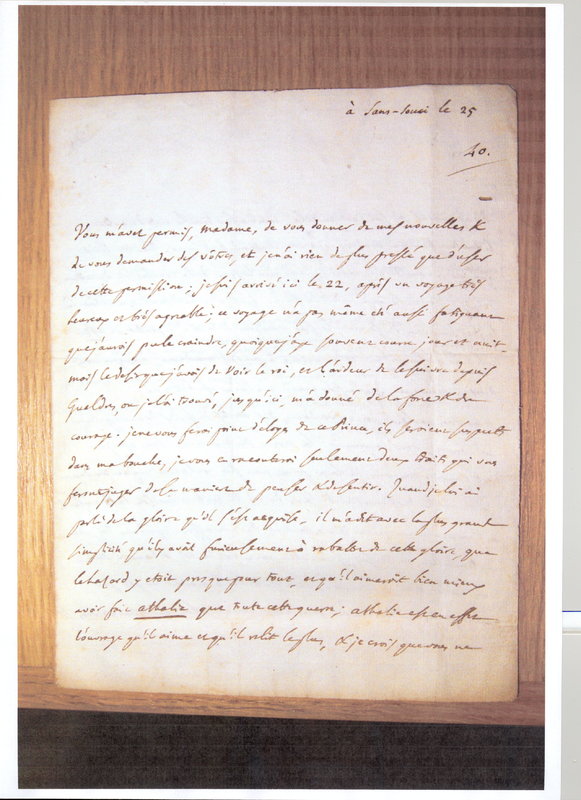 à Sans-Souci le 25
40.
Vous m'avez permis, Madame, de vous donner de mes nouvelles &
de vous demander des vôtres, et je n'ai rien de plus pressé que d'user
de cette permission; je suis arrivé ici le 22, après un voyage très
heureux et très agreable; ce voyage n'a pas même été aussi fatiguant
que j'aurois pu le craindre, quoique j'aye souvent couru jour et nuit.
mais le desir que j'avois de voir le roi, et l'ardeur de le suivre depuis
Gueldres, ou je l'ai trouvé, jusqu'ici, m'a donné de la force & du
courage. je ne vous ferai point d'éloges de ce Prince, ils seroient suspects
dans ma bouche, je vous en raconterai seulement deux traits qui vous
feront juger de la maniere de penser & de sentir. Quand je lui ai
parlé de la gloire qu'il s'est acquise, il m'a dit avec la plus grande
simplicité qu'il y avoit furieusement à rabattre de cette gloire, que
le hasard y étoit presque pour tout, et qu'il aimeroit bien mieux
avoir fait athalie que toute cette guerre; athalie est en effet
l'ouvrage qu'il aime et qu'il relit le plus, & je crois que vous ne